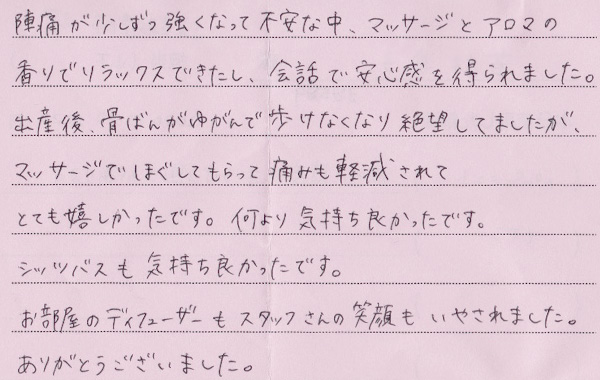 陣痛が少しずつ強くなって不安な中、マッサージとアロマの
香りでリラックスできたし、会話で安心感を得られました。
出産後、骨ばんがゆがんで歩けなくなり絶望してましたが、
マッサージでほぐしてもらって痛みも軽減されて
とても嬉しかったです。何より気持ち良かったです。
シッツバスも気持ち良かったです。
お部屋のディフューザーもスタッフさんの笑顔もいやされました。
ありがとうございました。